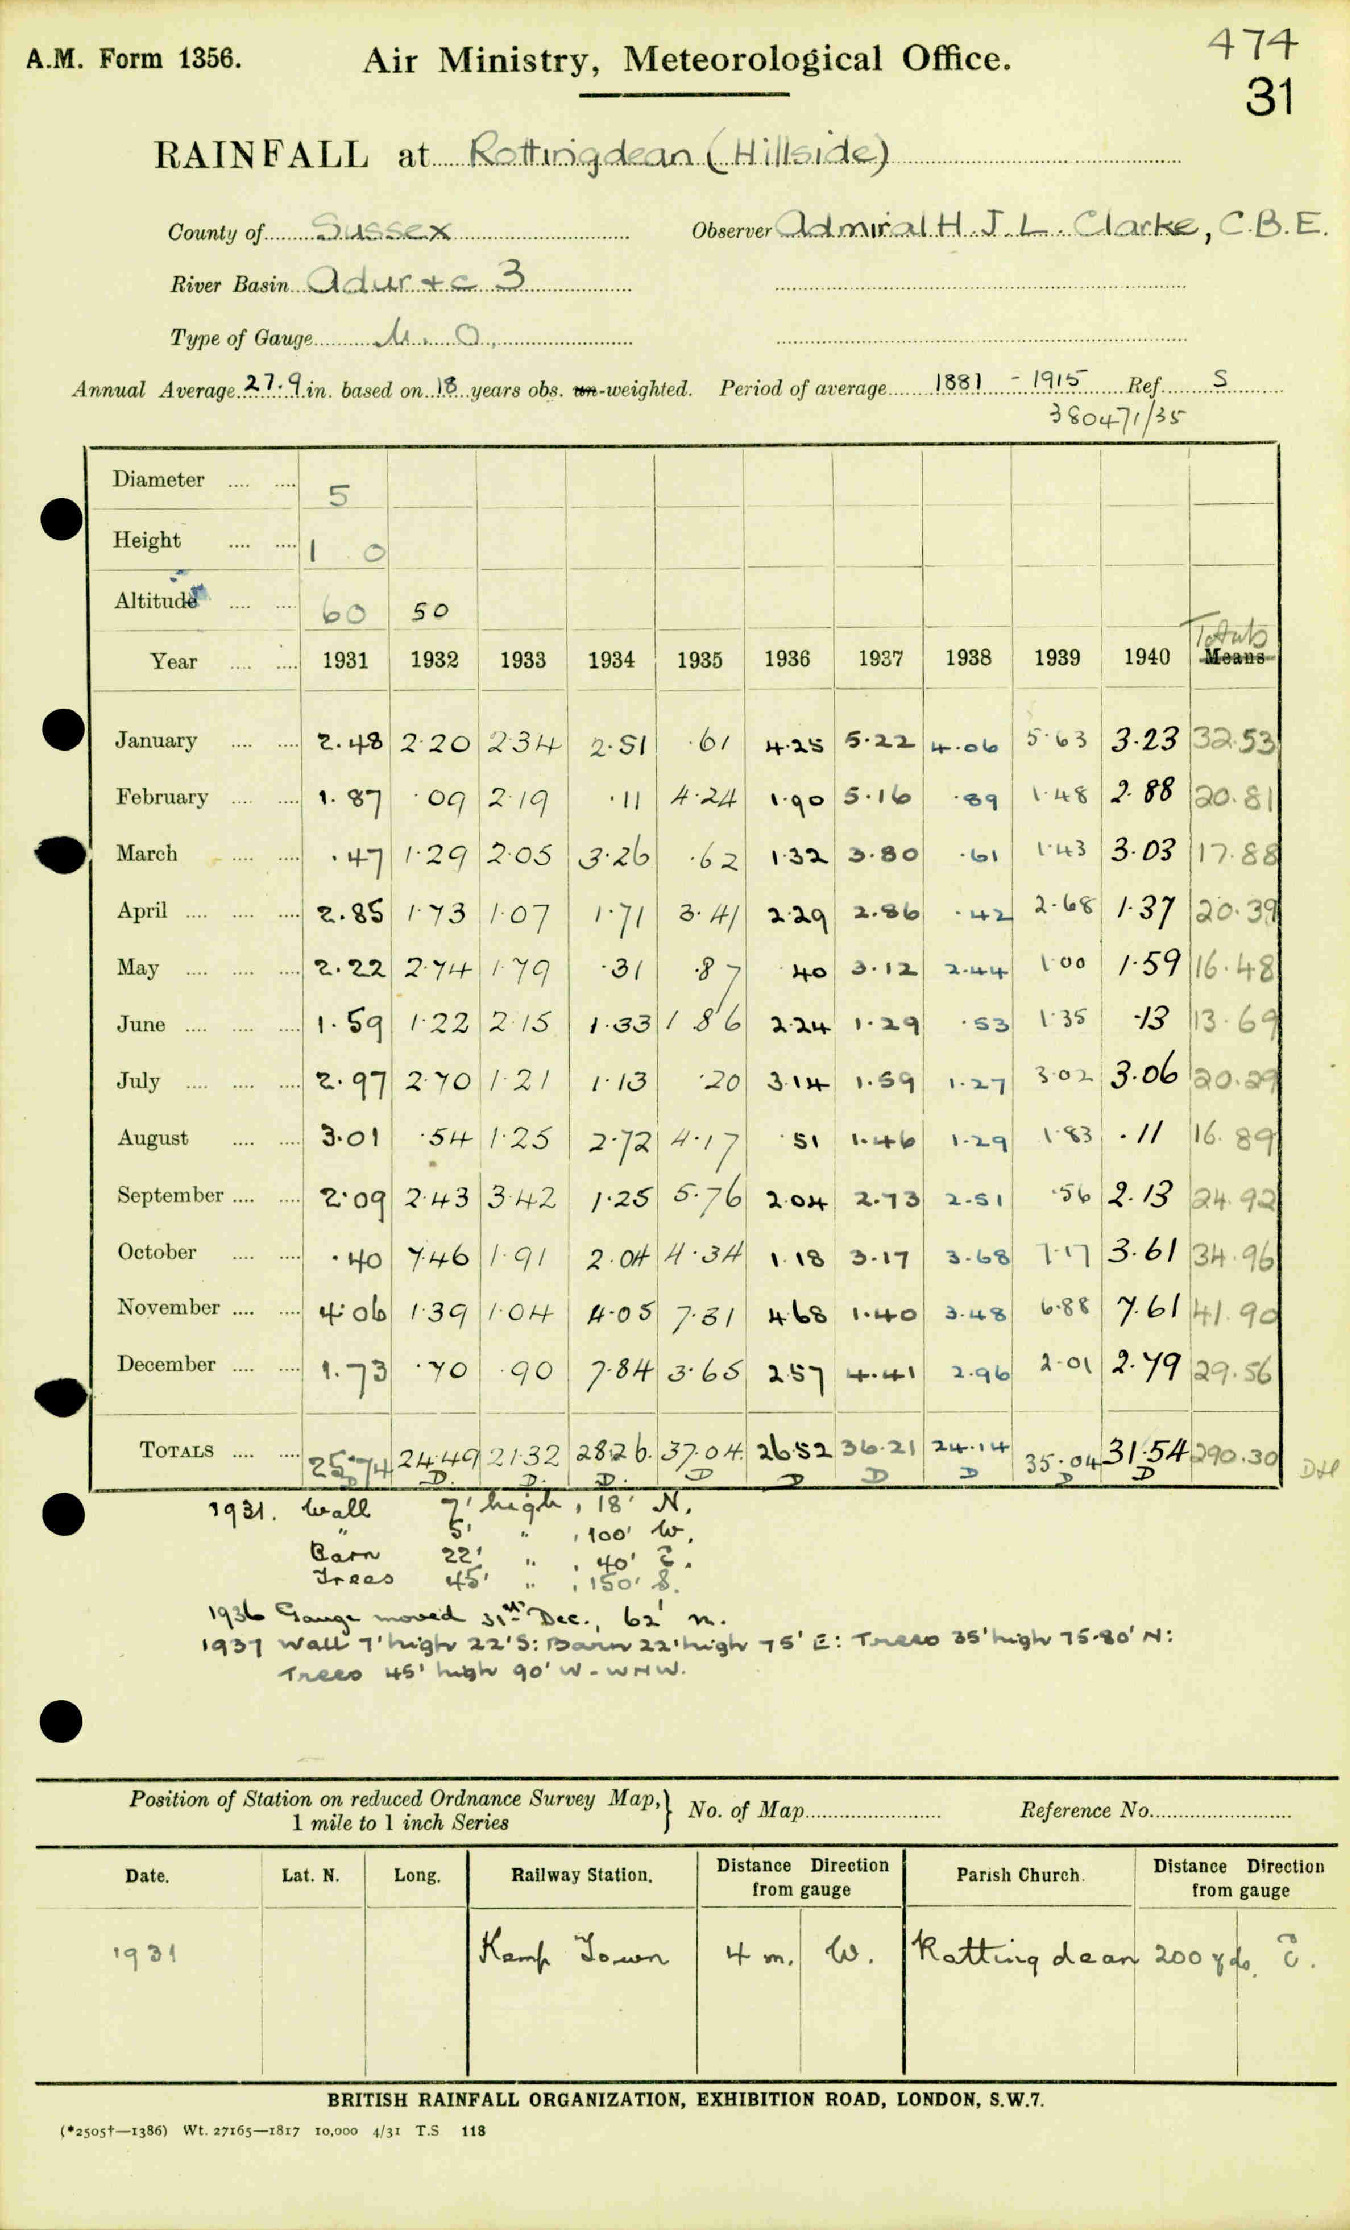 474
A.M. Form 1356. Air Ministry, Meteorological Office.
31
RAINFALL at Rottingdean (Hillside)
County of Sussex Observer Admiral H. J. L. Clarke, C.B.E.
River Basin Adur &c 3
Type of Gauge M. O.
Annual Average 27.9 in. based on 18 years obs. un-weighted. Period of average 1881 - 1915 Ref. S
380471/35
Diameter 5
Height 1 0
Altitude 60 50
Totals
Year 1931 1932 1933 1934 1935 1936 1937 1938 1939 1940 Means
January 2.48 2.20 2.34 2.51 .61 4.25 5.22 4.06 5.63 3.23 32.53
February 1.87 .09 2.19 .11 4.24 1.90 5.16 .89 1.48 2.88 20.81
March .47 1.29 2.05 3.26 .62 1.32 3.80 .61 1.43 3.03 17.88
April 2.85 1.73 1.07 1.71 3.41 2.29 2.86 .42 2.68 1.37 20.39
May 2.22 2.74 1.79 .31 .87 40 3.12 2.44 1.00 1.59 16.48
June 1.59 1.22 2.15 1.33 1 86 2.24 1.29 .53 1.35 .13 13.69
July 2.97 2.70 1.21 1.13 .20 3.14 1.59 1.27 3.02 3.06 20.29
August 3.01 .54 1.25 2.72 4.17 .51 1.46 1.29 1.83 .11 16.89
September 2.09 2.43 3.42 1.25 5.76 2.04 2.73 2.51 .56 2.13 24.92
October .40 7.46 1.91 2.04 4.34 1.18 3.17 3.68 7.17 3.61 34.96
November 4.06 1.39 1.04 4.05 7.31 4.68 1.40 3.48 6.88 7.61 41.90
December 1.73 .70 .90 7.84 3.65 2.57 4.41 2.96 2.01 2.79 29.56
TOTALS 25.74 24.49 21.32 28.26 37.04 26.52 36.21 24.14 35.04 31.54 290.30
D D. D. D. D D D D D D DH
1931. Wall 7' high, 18' N.
" 5' " , 100' W.
Barn 22' " , 40' E.
Trees 45' " , 150' S.
1936 Gauge moved 31st Dec., 62' N.
1937 Wall 7' high 22' S: Barn 22' high 75' E: Trees 35' high 75-80' N:
Trees 45' high 90' W-WNW.
Position of Station on reduced Ordnance Survey Map,} No. of Map Reference No.
1 mile to 1 inch Series
Date. Lat. N. Long. Railway Station. Distance Direction from gauge Parish Church. Distance Direction from gauge
1931 Kemp Town 4 m. W. Rottingdean 200 yds. E.
BRITISH RAINFALL ORGANIZATION, EXHIBITION ROAD, LONDON, S.W.7.
(*2505†—1386) Wt. 27165—1817 10,000 4/31 T.S 118